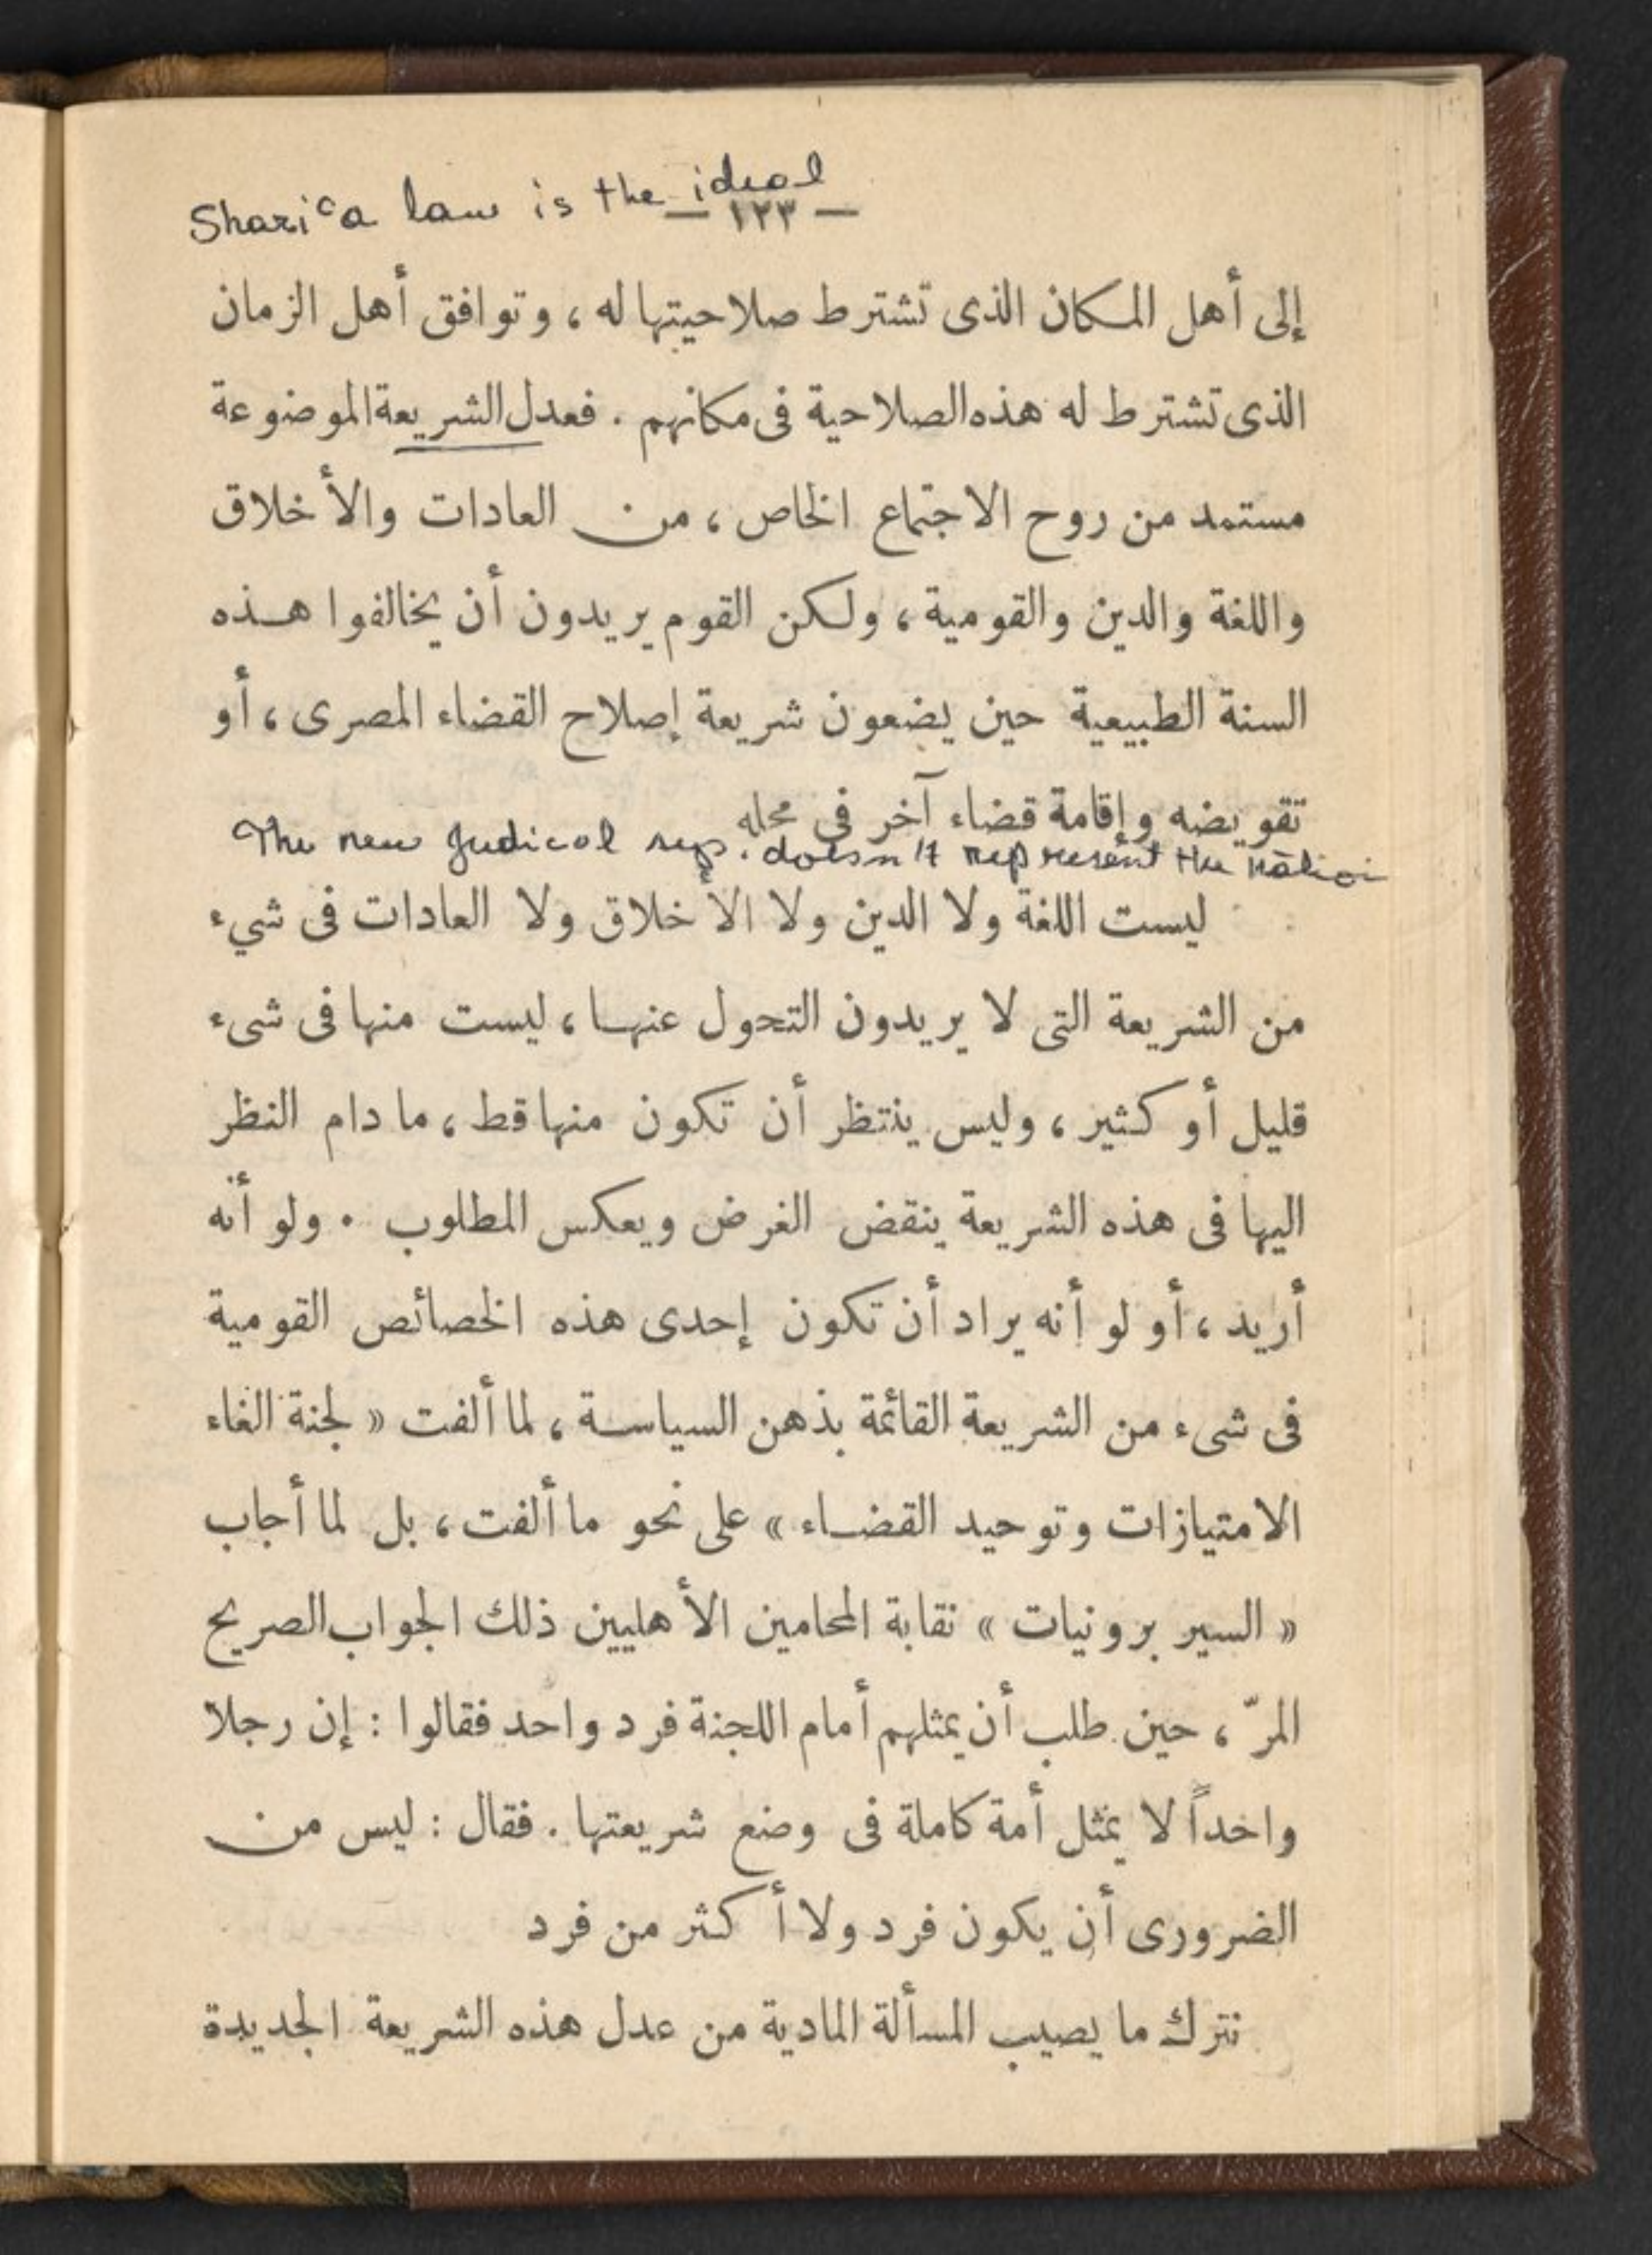 Shariʿa law is the ideal
— ١٢٣ —
إلى أهل المكان الذى تشترط صلاحيتها له ، وتوافق أهل الزمان
الذى تشترط له هذه الصلاحية فى مكانهم . فعدل الشريعة الموضوعة
مستمد من روح الاجتماع الخاص ، من العادات والأخلاق
واللغة والدين والقومية ، ولكن القوم يريدون أن يخالفوا هذه
السنة الطبيعية حين يضعون شريعة إصلاح القضاء المصرى ، أو
تقويضه وإقامة قضاء آخر فى محله
The new Judical rep. doesn't represent the nation
ليست اللغة ولا الدين ولا الأخلاق ولا العادات فى شيء
من الشريعة التى لا يريدون التحول عنها ، ليست منها فى شىء
قليل أو كثير ، وليس ينتظر أن تكون منها قط ، ما دام النظر
اليها فى هذه الشريعة ينقض الغرض ويعكس المطلوب . ولو أنه
أريد ، أو لو أنه يراد أن تكون إحدى هذه الخصائص القومية
فى شىء من الشريعة القائمة بذهن السياسة ، لما ألفت « لجنة الغاء
الامتيازات وتوحيد القضاء » على نحو ما ألفت ، بل لما أجاب
« السير برونيات » نقابة المحامين الأهليين ذلك الجواب الصريح
المرّ ، حين طلب أن يمثلهم أمام اللجنة فرد واحد فقالوا : إن رجلا
واحداً لا يمثل أمة كاملة فى وضع شريعتها . فقال : ليس من
الضرورى أن يكون فرد ولا أكثر من فرد
نترك ما يصيب المسألة المادية من عدل هذه الشريعة الجديدة